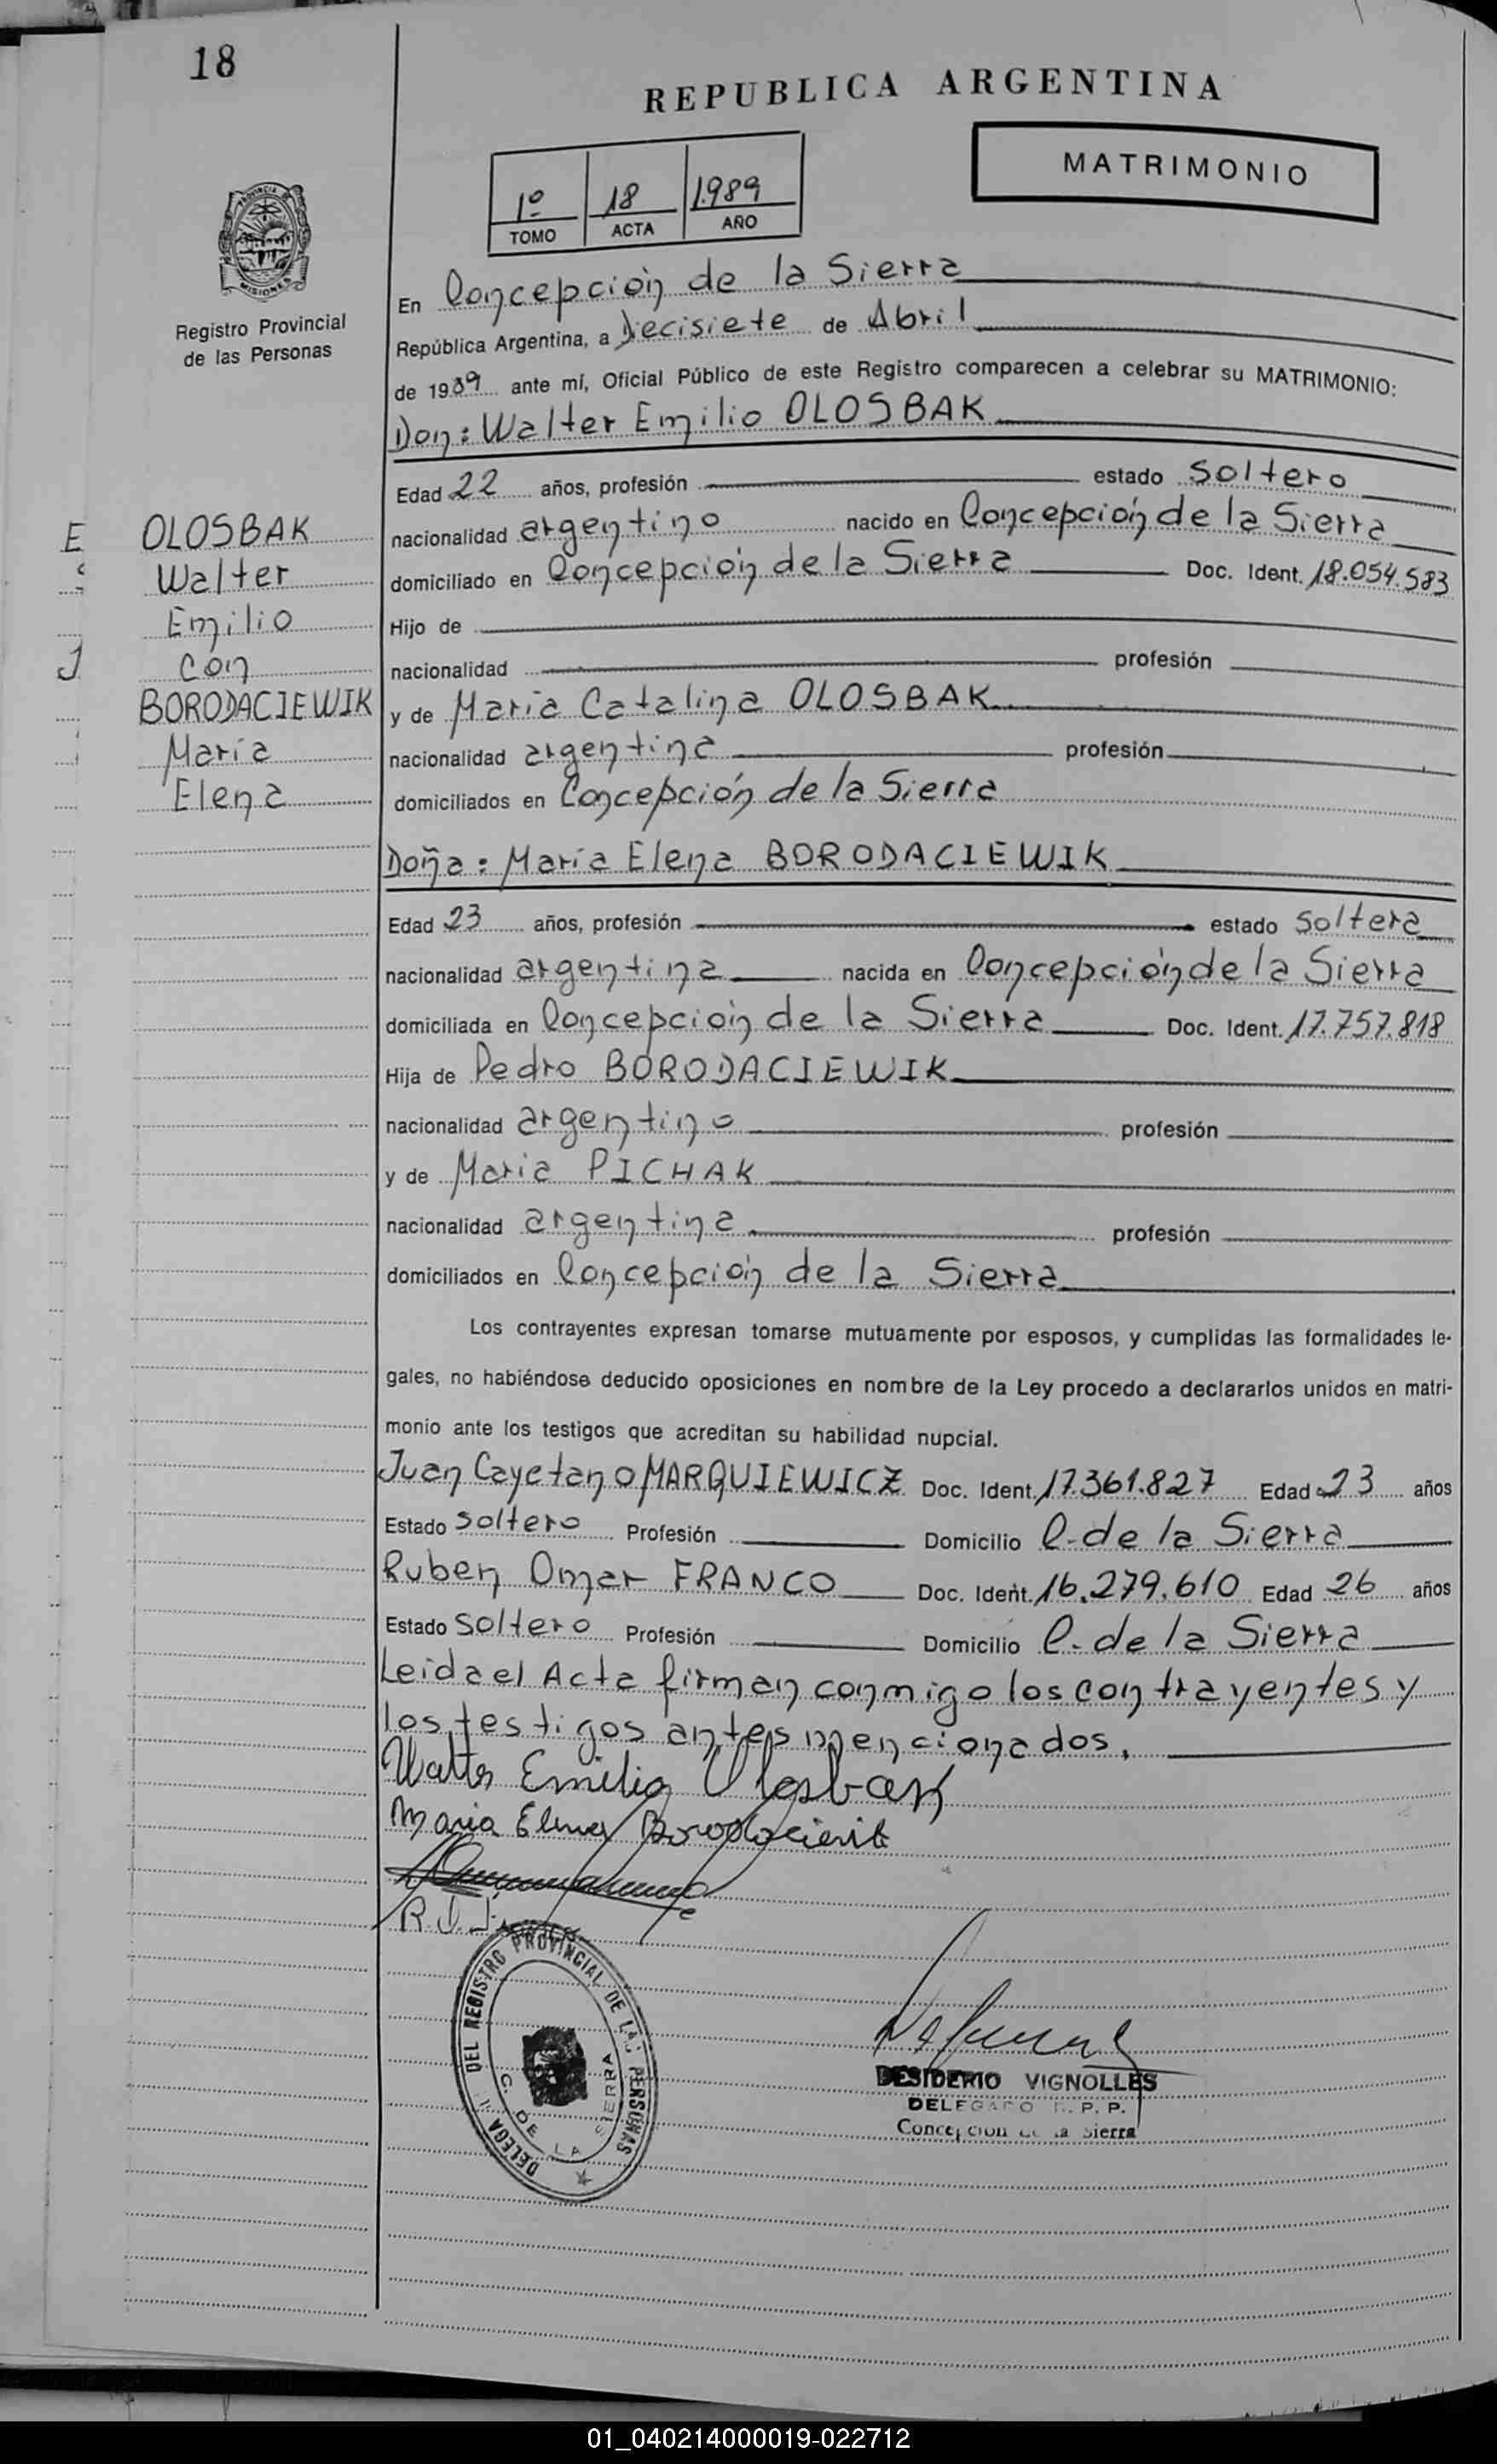 18
REPUBLICA ARGENTINA
MATRIMONIO
1º 18 1.989
TOMO ACTA AÑO
PROVINCIA
MISIONES
Registro Provincial
de las Personas
En Concepción de la Sierra
República Argentina, a Diecisiete de Abril
de 1989 ante mí, Oficial Público de este Registro comparecen a celebrar su MATRIMONIO:
Don: Walter Emilio OLOSBAK
Edad 22 años, profesión estado Soltero
nacionalidad argentino nacido en Concepción de la Sierra
domiciliado en Concepción de la Sierra Doc. Ident. 18.054.583
Hijo de
nacionalidad profesión
y de Maria Catalina OLOSBAK
nacionalidad argentina profesión
domiciliados en Concepción de la Sierra
OLOSBAK
Walter
Emilio
con
BORODACIEWIK
María
Elena
Doña: María Elena BORODACIEWIK
Edad 23 años, profesión estado Soltera
nacionalidad argentina nacida en Concepción de la Sierra
domiciliada en Concepción de la Sierra Doc. Ident. 17.757.818
Hija de Pedro BORODACIEWIK
nacionalidad argentino profesión
y de Maria PICHAK
nacionalidad argentina profesión
domiciliados en Concepción de la Sierra
Los contrayentes expresan tomarse mutuamente por esposos, y cumplidas las formalidades le-
gales, no habiéndose deducido oposiciones en nombre de la Ley procedo a declararlos unidos en matri-
monio ante los testigos que acreditan su habilidad nupcial.
Juan Cayetano MARQUIEWICZ Doc. Ident. 17.361.827 Edad 23 años
Estado Soltero Profesión Domicilio C. de la Sierra
Ruben Omar FRANCO Doc. Ident. 16.279.610 Edad 26 años
Estado Soltero Profesión Domicilio C. de la Sierra
Leida el Acta firman conmigo los contrayentes y
los testigos antes mencionados.
Walter Emilio Olosbak
Maria Elena Borodaciewik
DEL REGISTRO PROVINCIAL DE LAS PERSONAS
C. DE LA SIERRA
DESIDERIO VIGNOLLES
DELEGADO R. P. P.
Concepcion de la Sierra
01_040214000019-022712